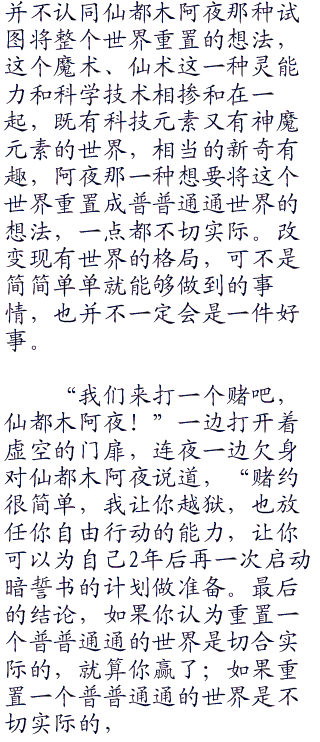 并不认同仙都木阿夜那种试
图将整个世界重置的想法，
这个魔术、仙术这一种灵能
力和科学技术相掺和在一
起，既有科技元素又有神魔
元素的世界，相当的新奇有
趣，阿夜那一种想要将这个
世界重置成普普通通世界的
想法，一点都不切实际。改
变现有世界的格局，可不是
简简单单就能够做到的事
情，也并不一定会是一件好
事。
“我们来打一个赌吧，
仙都木阿夜！”一边打开着
虚空的门扉，连夜一边欠身
对仙都木阿夜说道，“赌约
很简单，我让你越狱，也放
任你自由行动的能力，让你
可以为自己2年后再一次启动
暗誓书的计划做准备。最后
的结论，如果你认为重置一
个普普通通的世界是切合实
际的，就算你赢了；如果重
置一个普普通通的世界是不
切实际的，